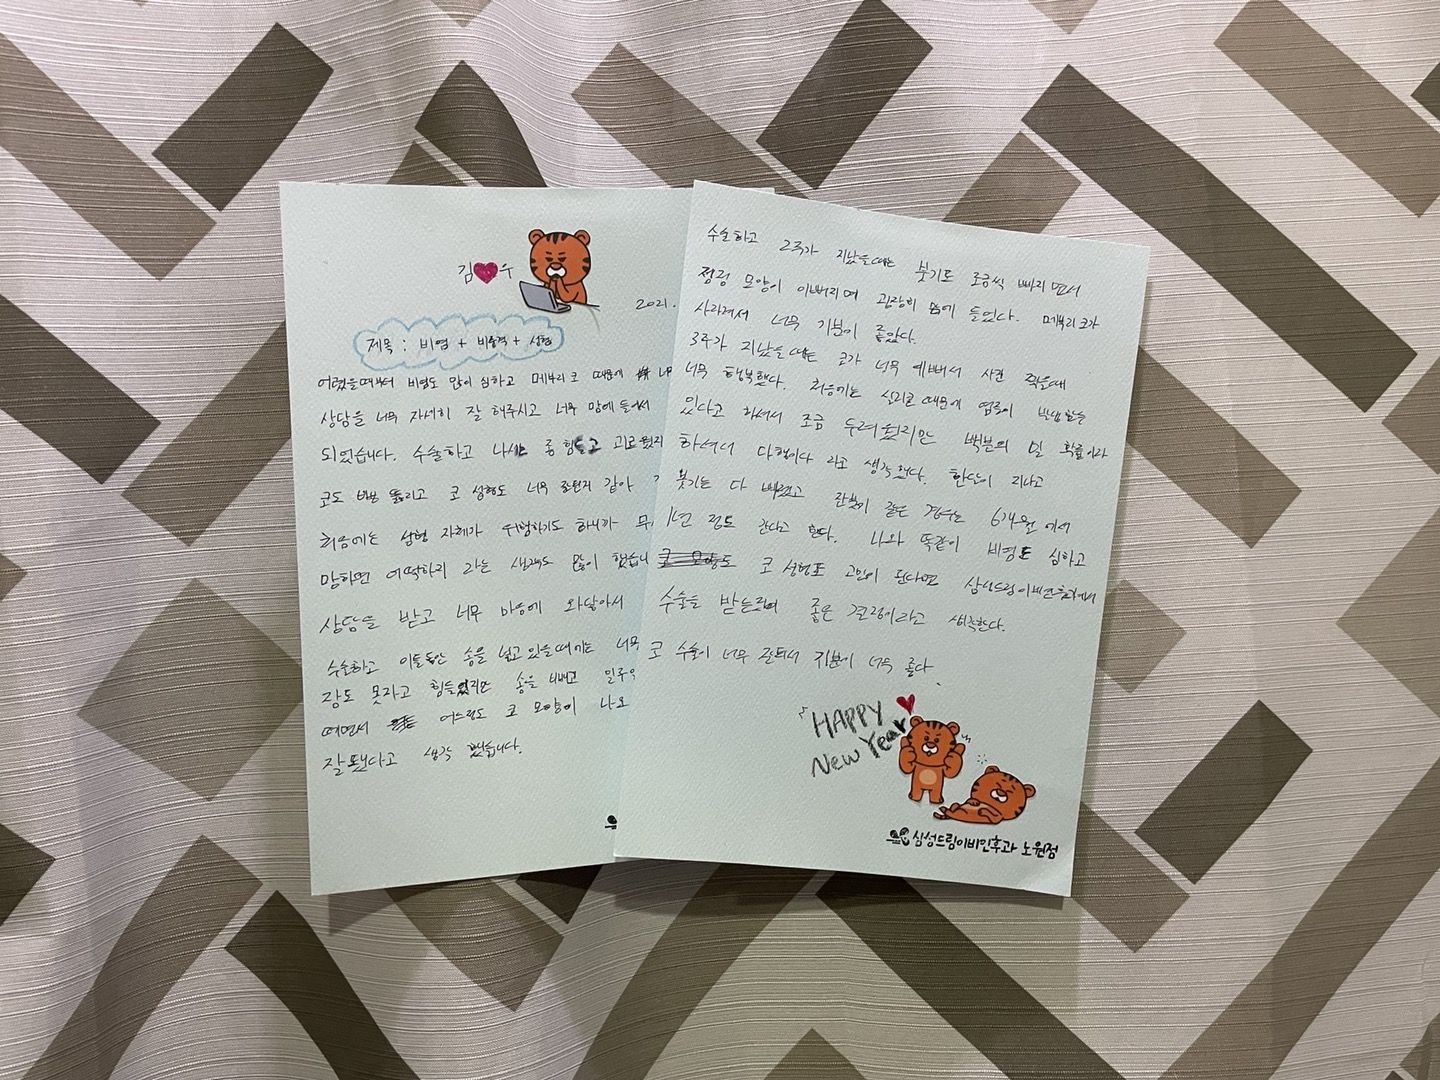 김♥우
2021.
제목 : 비염 + 비중격 + 성형
어렸을때부터 비염도 많이 심하고 메부리코 때문에
상담을 너무 자세히 잘 해주시고 너무 맘에 들어서
되었습니다. 수술하고 나서는 좀 힘들고 괴로웠지
코도 뻥 뚫리고 코 성형도 너무 잘된거 같아
처음에는 성형 자체가 위험하기도 하니까
망하면 어떡하지 라는 생각도 많이 했습니
상담을 받고 너무 마음에 와닿아서
수술하고 이틀동안 솜을 넣고 있을때에는 너무
잠도 못자고 힘들었지만 솜을 빼고 일주일
떼면서 어느정도 코 모양이 나오
잘됐다고 생각 했습니다.
수술하고 2주가 지났을때는 붓기도 조금씩 빠지면서
점점 모양이 이뻐지며 굉장히 맘에 들었다. 메부리코가
사라져서 너무 기분이 좋았다.
3주가 지났을때는 코가 너무 예뻐서 사진 찍을때
너무 행복했다. 처음에는 실리콘 때문에 염증이 반응할수
있다고 하셔서 조금 두려웠지만 백분의 일 확률이라
하셔서 다행이다 라고 생각했다. 한달이 지나고
붓기는 다 빠졌고 잔붓기 같은 경우는 6개월에서
1년 정도 간다고 한다. 나와 똑같이 비염도 심하고
코 성형도 고민이 된다면 삼성드림이비인후과에서
수술을 받는것이 좋은 결정이라고 생각한다.
코 수술이 너무 잘되서 기분이 너무 좋다.
HAPPY
New Year
삼성드림이비인후과 노원점